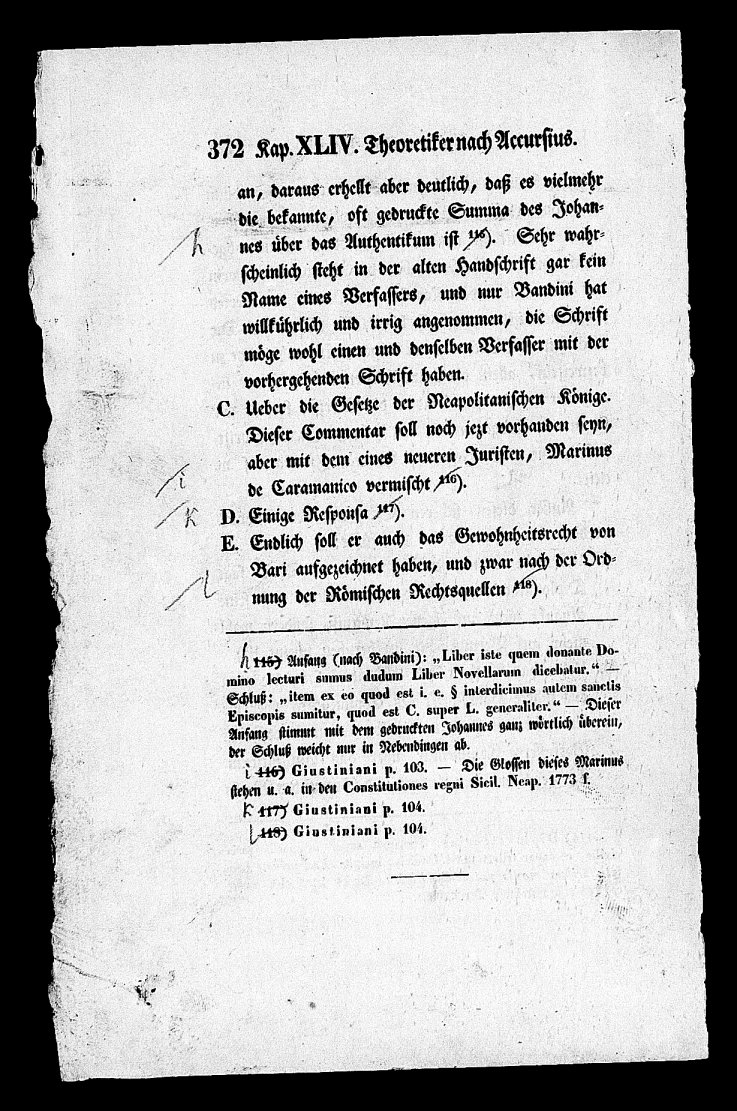 372 Kap. XLIV. Theoretiker nach Accursius.
an, daraus erhellt aber deutlich, daß es vielmehr
die bekannte, oft gedruckte Summa des Johan-
h nes über das Authentikum ist 115). Sehr wahr-
scheinlich steht in der alten Handschrift gar kein
Name eines Verfassers, und nur Bandini hat
willkührlich und irrig angenommen, die Schrift
möge wohl einen und denselben Verfasser mit der
vorhergehenden Schrift haben.
C. Ueber die Gesetze der Neapolitanischen Könige.
Dieser Commentar soll noch jezt vorhanden seyn,
aber mit dem eines neueren Juristen, Marinus
i de Caramanico vermischt 116).
k D. Einige Responsa 117).
E. Endlich soll er auch das Gewohnheitsrecht von
Bari aufgezeichnet haben, und zwar nach der Ord-
l nung der Römischen Rechtsquellen 118).
h 115) Anfang (nach Bandini): „Liber iste quem donante Do-
mino lecturi sumus dudum Liber Novellarum dicebatur.“ —
Schluß: „item ex eo quod est i. e. § interdicimus autem sanctis
Episcopis sumitur, quod est C. super L. generaliter.“ — Dieser
Anfang stimmt mit dem gedruckten Johannes ganz wörtlich überein,
der Schluß weicht nur in Nebendingen ab.
i 116) Giustiniani p. 103. — Die Glossen dieses Marinus
stehen u. a. in den Constitutiones regni Sicil. Neap. 1773 f.
k 117) Giustiniani p. 104.
l 118) Giustiniani p. 104.